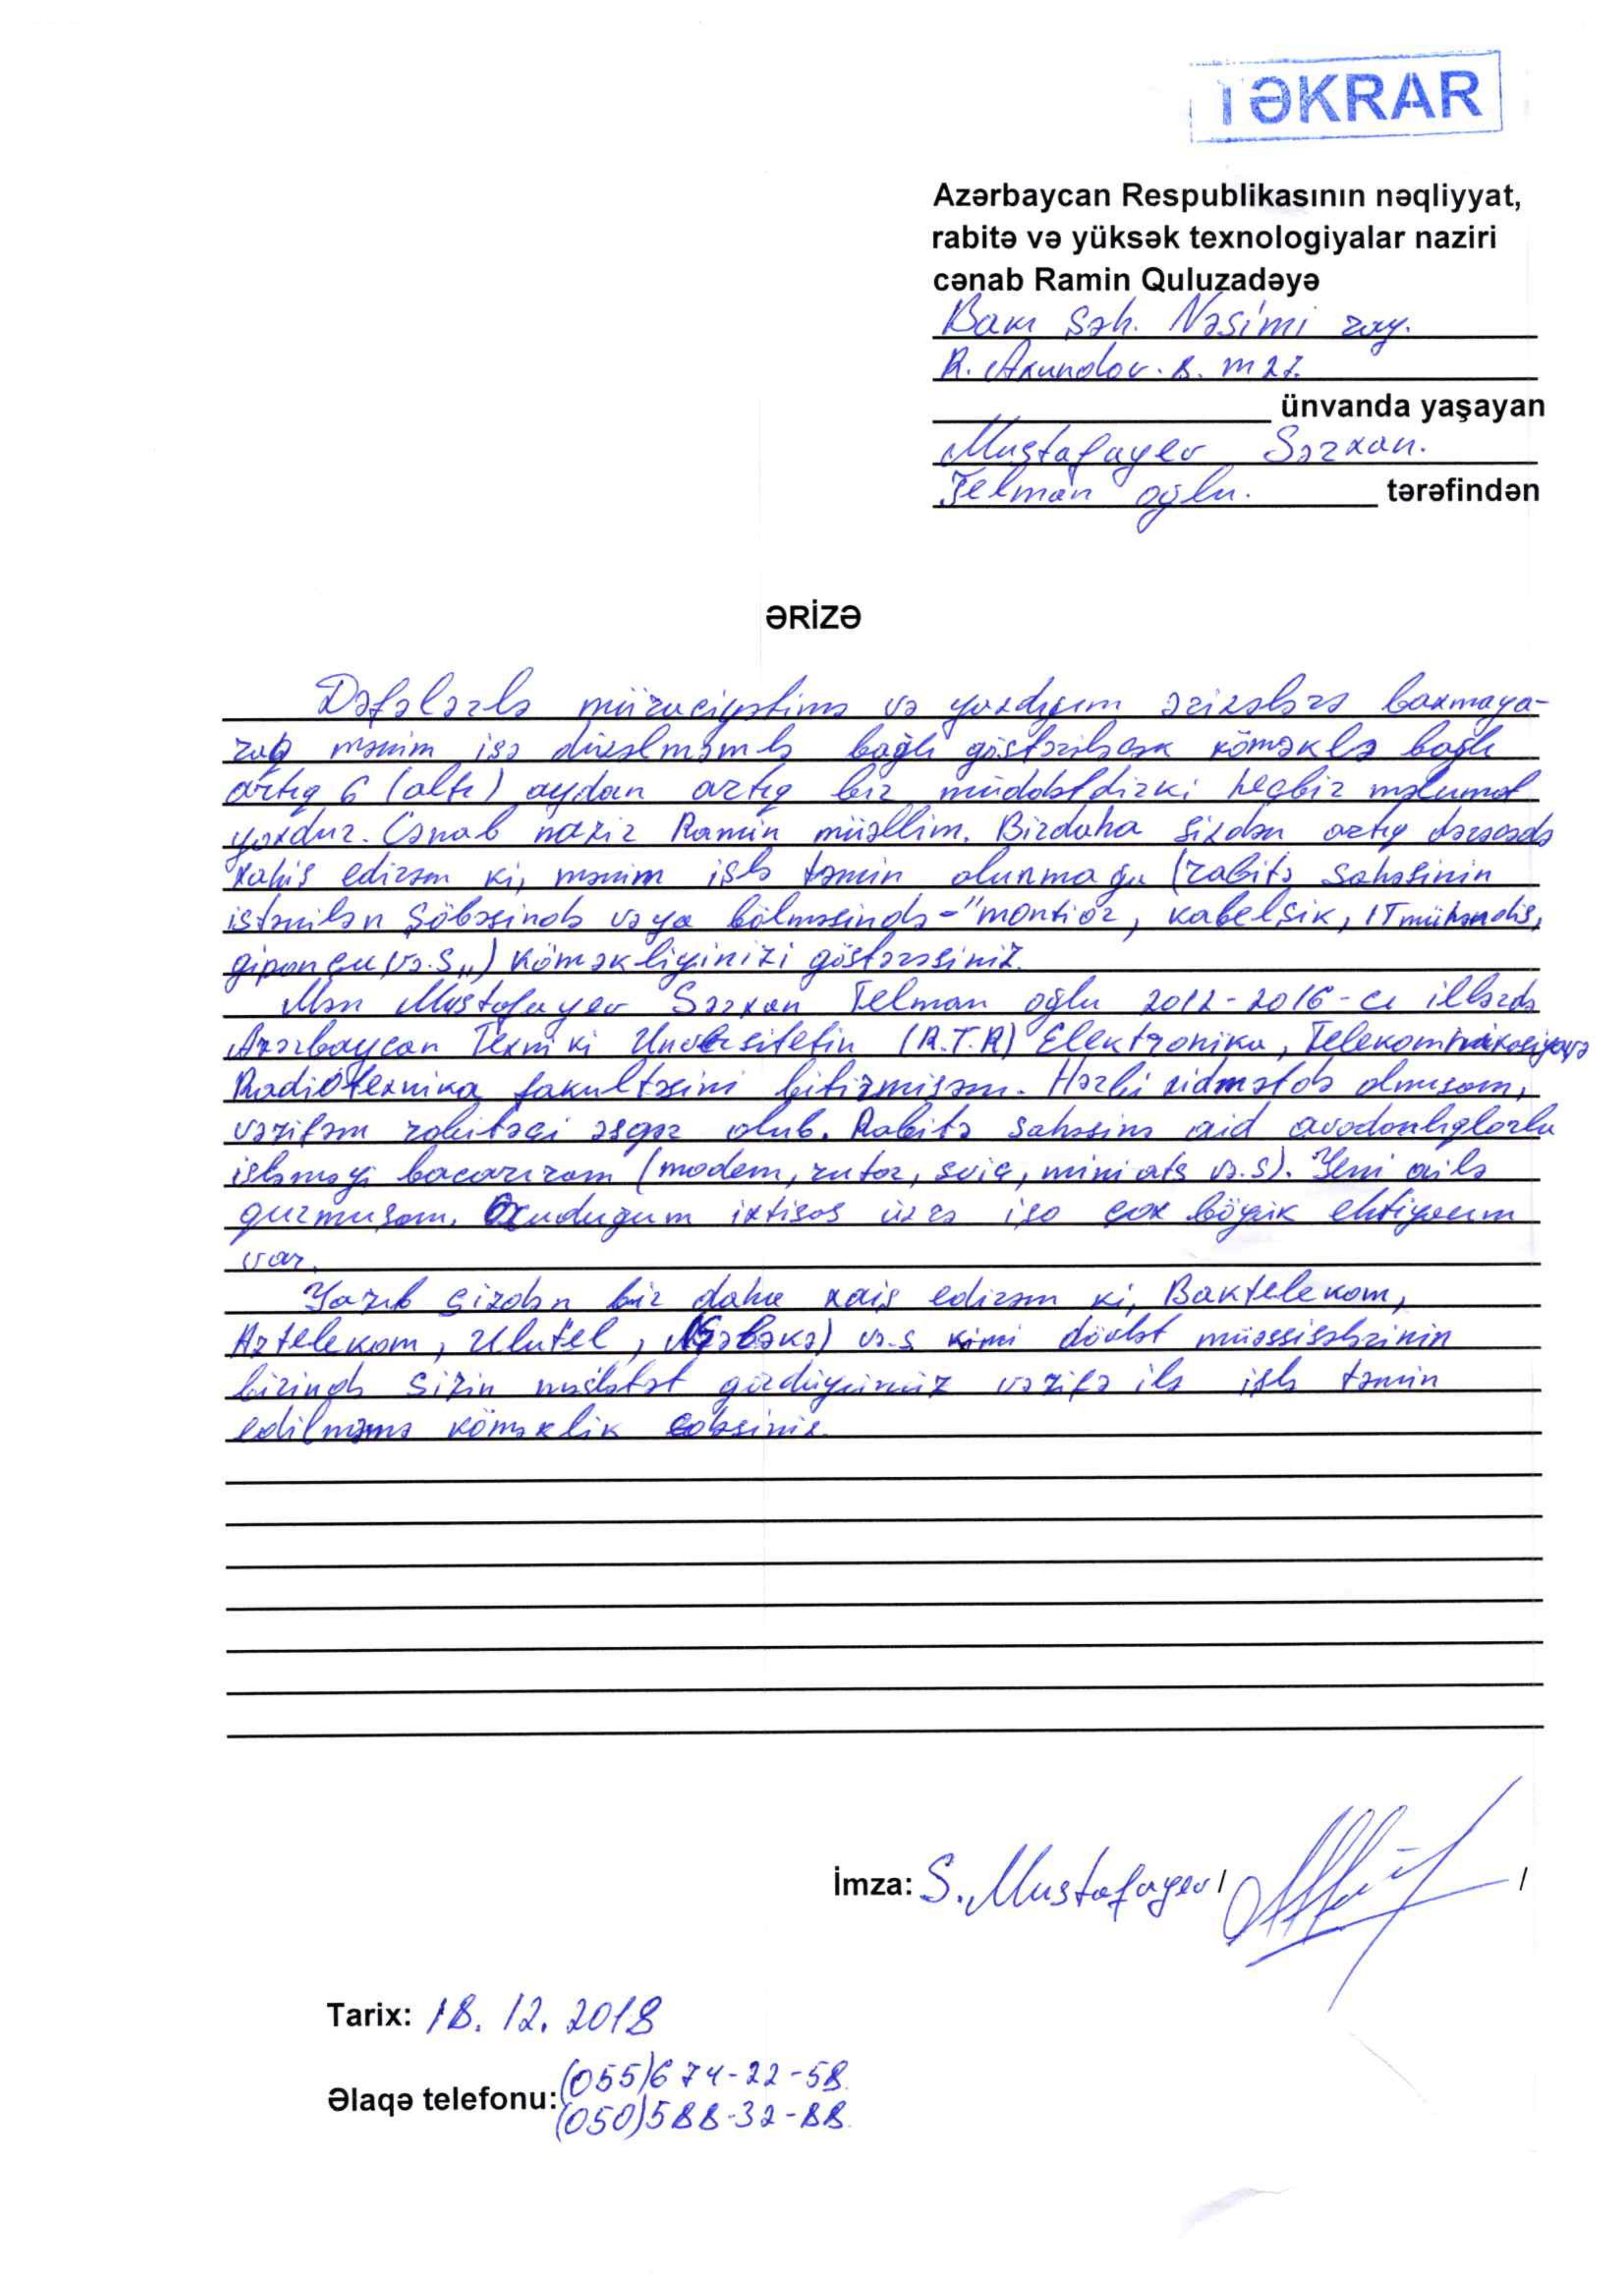 TƏKRAR
Azərbaycan Respublikasının nəqliyyat,
rabitə və yüksək texnologiyalar naziri
cənab Ramin Quluzadəyə
Bakı Şəh. Nəsimi ray.
R. Axundov. 8. m 27.
ünvanda yaşayan
Mustafayev Sərxan.
Telman oğlu. tərəfindən
ƏRİZƏ
Dəfələrlə müraciyətimə və yazdığım ərizələrə baxmaya-
raq mənim işə düzəlməmlə bağlı göstəriləcək köməklə bağlı
artıq 6 (altı) aydan artıq bir müddətdirki heçbir məlumat
yoxdur. Cənab nazir Ramin müəllim. Birdaha sizdən artıq dərəcədə
xahiş edirəm ki, mənim işlə təmin olunmağa (rabitə sahəsinin
istənilən şöbəsində vəya bölməsində-"montior, kabelşik, IT mühəndis,
giponçu və.s,,) köməkliyinizi göstərəsiniz.
Mən Mustafayev Sərxan Telman oğlu 2012-2016-cı illərdə
Azərbaycan Texniki Unversitetin (R.T.R) Elektronika, Telekommnikasiya və
Radiotexnika fakultəsini bitirmişəm. Hərbi xidmətdə olmuşam,
vəzifəm rabitəçi əsgər olub. Rabitə sahəsinə aid avadanlıqlarla
işləməyi bacarıram (modem, rutor, sviç, mini ats və.s). Yeni ailə
qurmuşam. Oxuduğum ixtisas üzrə işə çox böyük ehtiyacım
var.
Yazıb sizdən bir daha xaiş edirəm ki, Baktelekom,
Aztelekom, Ulutel, Şəbəkə) və.s kimi dövlət müəssisələrinin
birində sizin məsləhət gördüyünüz vəzifə ilə işlə təmin
edilməmə köməklik edəsiniz.
İmza: S. Mustafayev / /
Tarix: 18. 12. 2018
Əlaqə telefonu: (055)674-22-58
(050)588-32-88